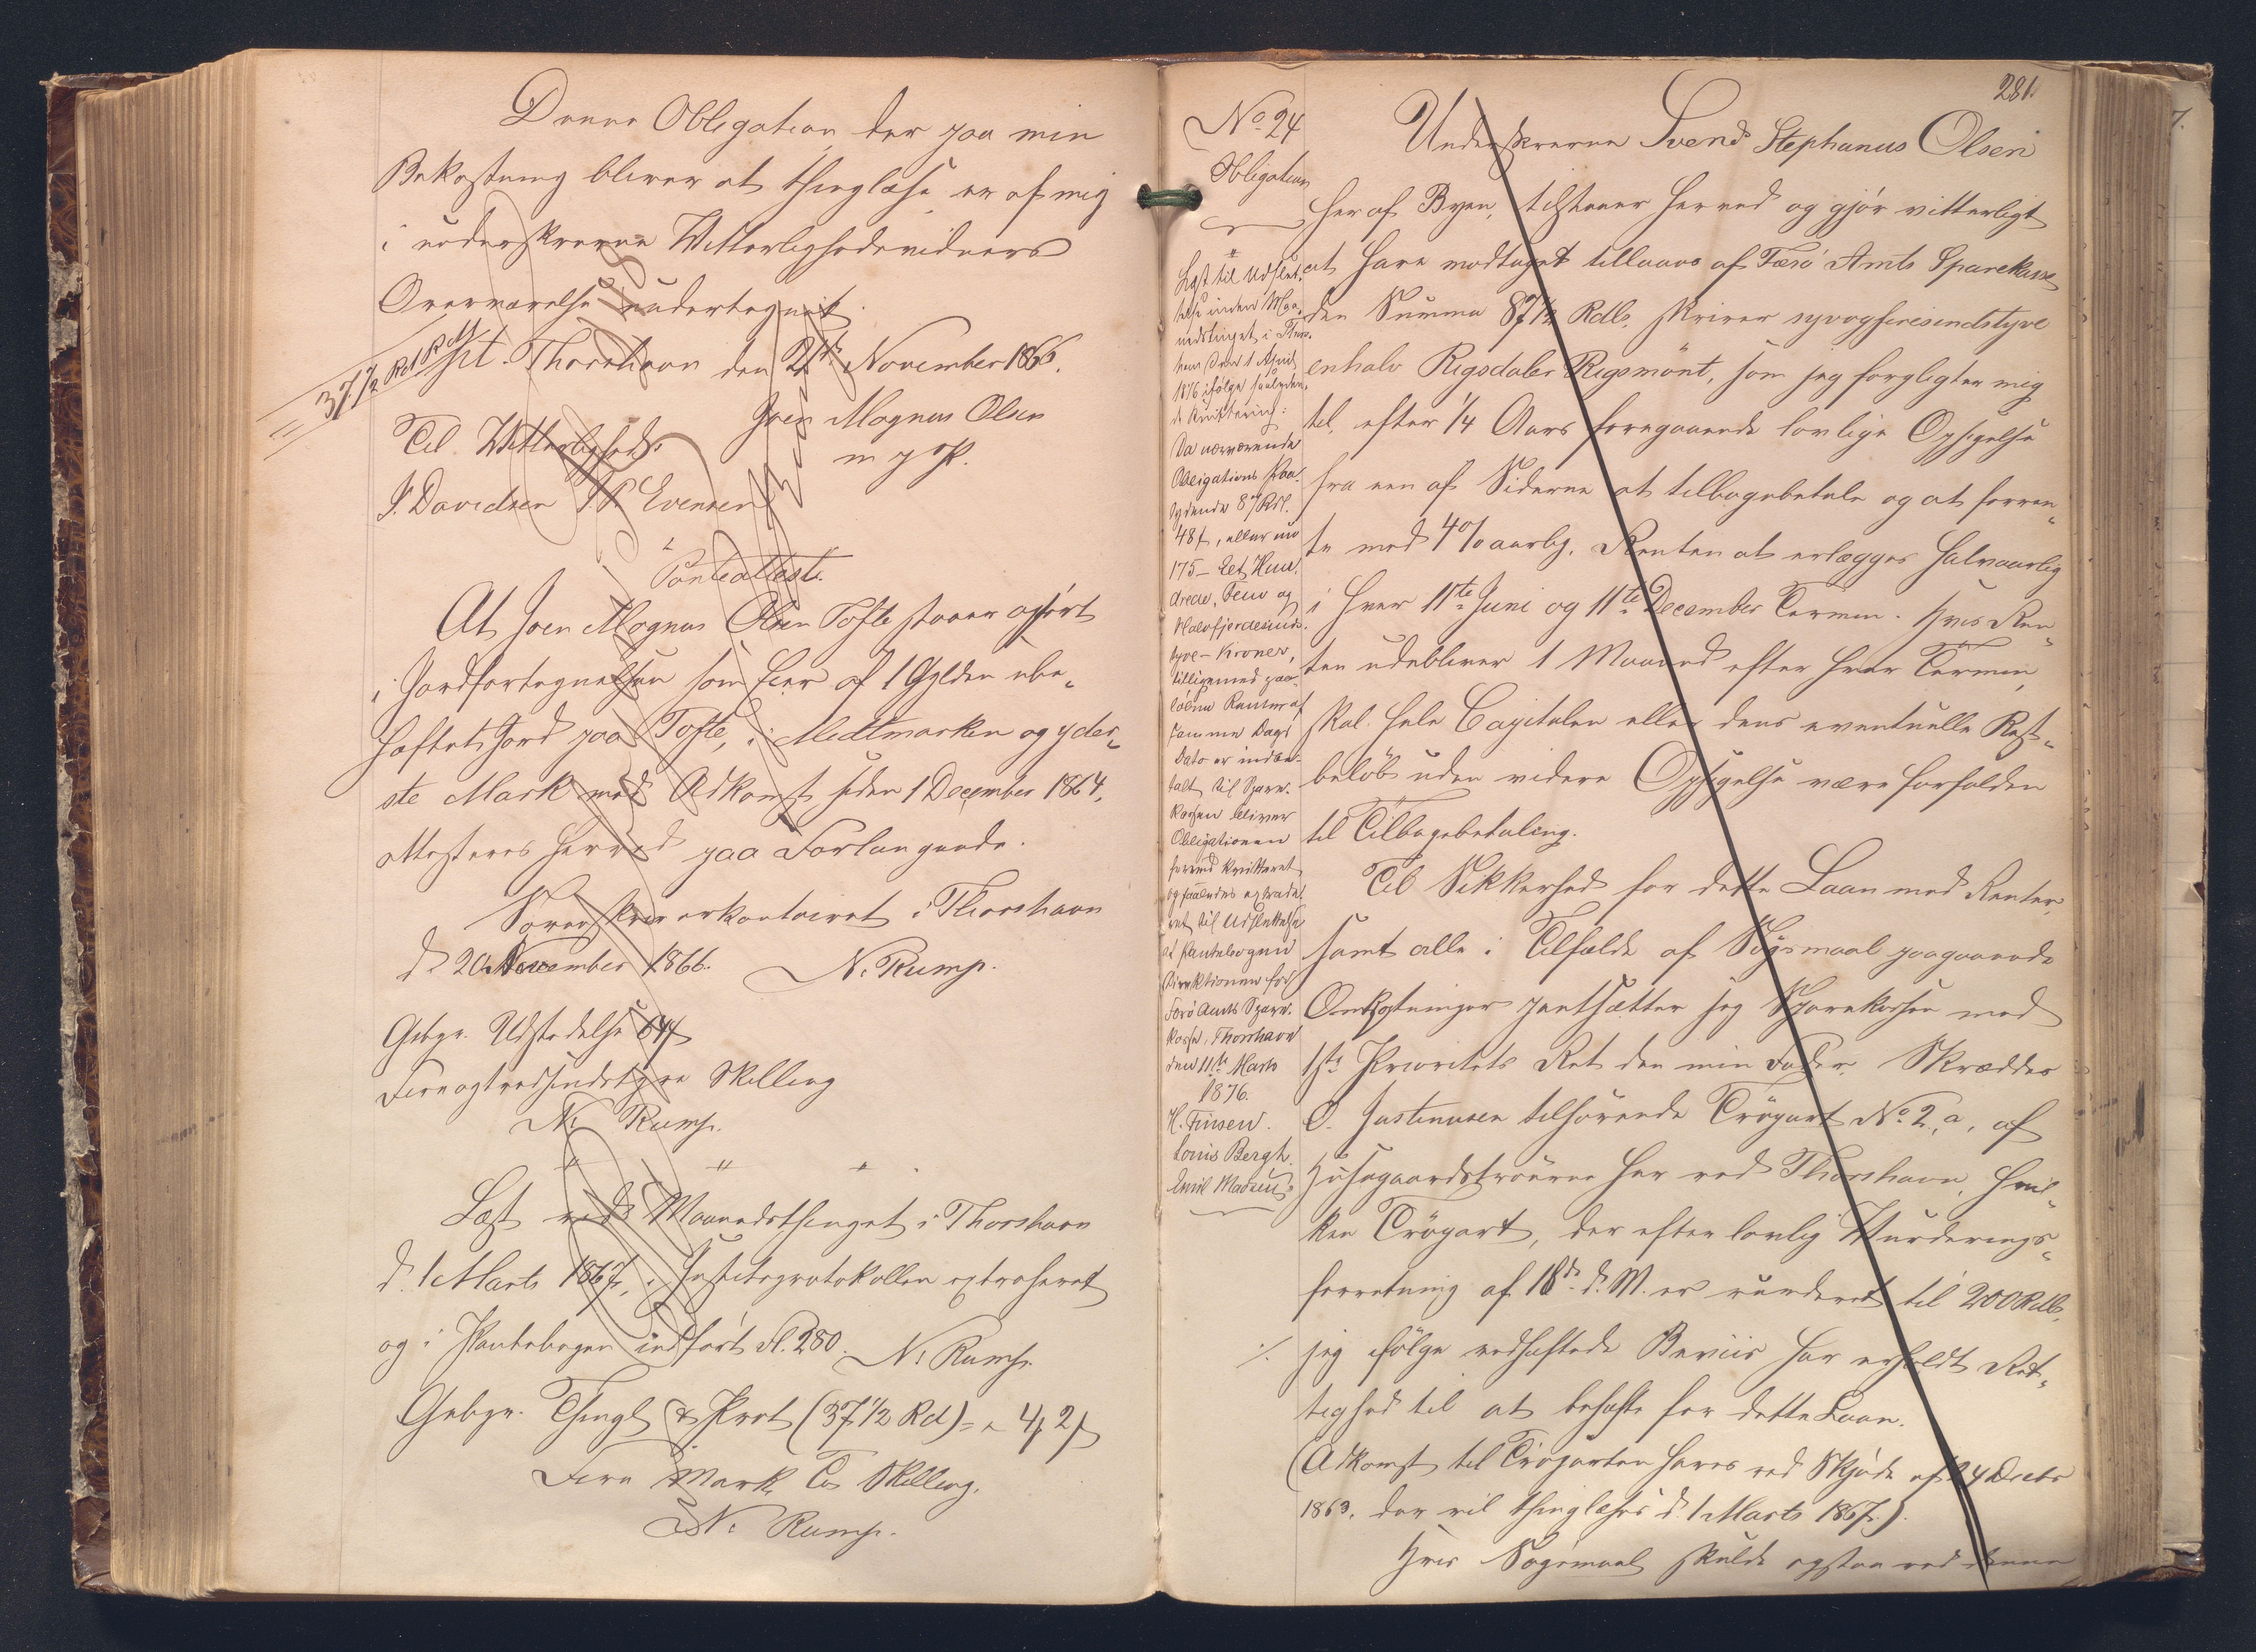 Denne Obligation, der paa min
Bekostning bliver at thinglæse er af mig
i underskrevne Vitterlighedsvidners
Overværelse undertegnet.
37½ Rd RM
pt. Thorshavn den 21de November 1866.
Joen Magnus Olsen
m. p. P.
Til Vitterlighed:
J. Davidsen J. P. Evensen
Panteattest.
At Joen Magnus Olsen Tofte staaer opført
i Jordfortegnelsen som Eier af 1 Gylden ube„
hæftet Jord paa Tofte, i Midtmarken og yder„
ste Mark med Adkomst siden 1 December 1864,
attesteres herved paa Forlangende.
Sorenskriverkontoiret i Thorshavn
d. 20 November 1866. N. Rump.
Gebyr. Udstedelse 64 s
Fireogtredsindstyve Skilling
N. Rump.
Læst ved Maanedsthinget i Thorshavn
d. 1 Marts 1867, i Justitsprotokollen extraheret
og i Pantebogen indført Fl. 280. N. Rump.
Gebyr. Thingl. & Prot (37 1/2 Rd) = „ 4 M 2 s
Fire Mark To Skilling.
N. Rump.
281.
No 24
Obligation
Læst til Udslet„
telse inden Maa„
nedstinget i Thors„
havn den 1 April
1876 ifølge saalyden„
de Kvittering:
Da nærværende
Obligations Paa„
lydende 87 Rdl.
48 s, eller nu
175 – Eet Hun„
drede, Fem og
Halvfjerdesinds„
tyve – Kroner,
tilligemed paa„
løbne Renter af
samme Dags
Dato er indbe„
talt til Spare„
kassen bliver
Obligationen
herved kvitteret
og saaledes extrade„
ret til Udslettelse
af Pantebogen
Direktionen for
Færø Amts Spare„
kasse, Thorshavn
den 11te Marts
1876.
H. Finsen.
Louis Bergh.
Emil Madsen
Underskrevne Svend Stephanus Olsen
her af Byen, tilstaaer herved og gjør vitterligt
at have modtaget tillaans af Færø Amts Sparekasse
den Summa 87½ Rdlr. skriver syvogfiresindstyve
enhalv Rigsdaler Rigsmønt, som jeg forpligter mig
til, efter 1/4 Aars foregaaende lovlige Opsigelse
fra een af Siderne at tilbagebetale og at forren„
te med 4% aarlig. Renten at erlægges halvaarlig
i hver 11te Juni og 11te December Termin. Hvis Ren„
ten udebliver 1 Maaned efter hver Termin,
skal hele Capitalen eller dens eventuelle Rest„
beløb uden videre Opsigelse være forfalden
til Tilbagebetaling.
Til Sikkerhed for dette Laan med Renter,
samt alle i Tilfælde af Søgsmaal paagaaende
Omkostninger pantsætter jeg Sparekassen med
1ste Prioritets Ret den min Fader Skrædder
O. Justinussen tilhørende Trøpart No 2, a, af
Husagaardstrøerne her ved Thorshavn, hvil„
ken Trøpart, der efter lovlig Vurderings„
forretning af 18de d. M. er vurderet til 200 Rdlr,
./. jeg ifølge vedhæftede Beviis har erholdt Ret„
tighed til at behæfte for dette Laan.
(Adkomst til Trøparten haves ved Skjøde af 24 Decbr
1863, der vil thinglæses d. 1 Marts 1867.).
Hvis Søgsmaal skulde opstaa ved denne